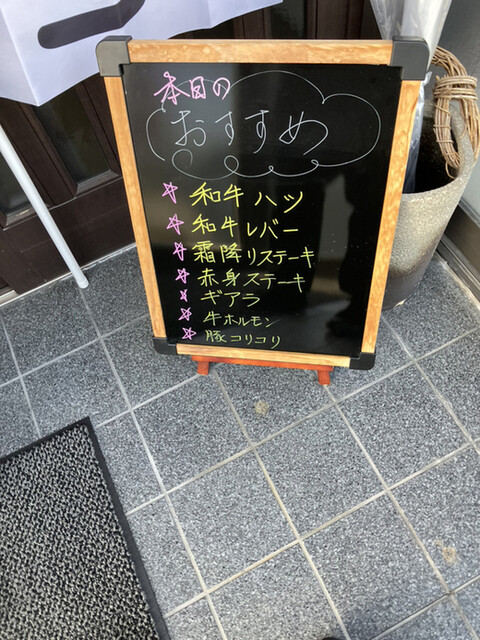 本日の
おすすめ
☆ 和牛ハツ
☆ 和牛レバー
☆ 霜降りステーキ
☆ 赤身ステーキ
☆ ギアラ
☆ 牛ホルモン
☆ 豚コリコリ